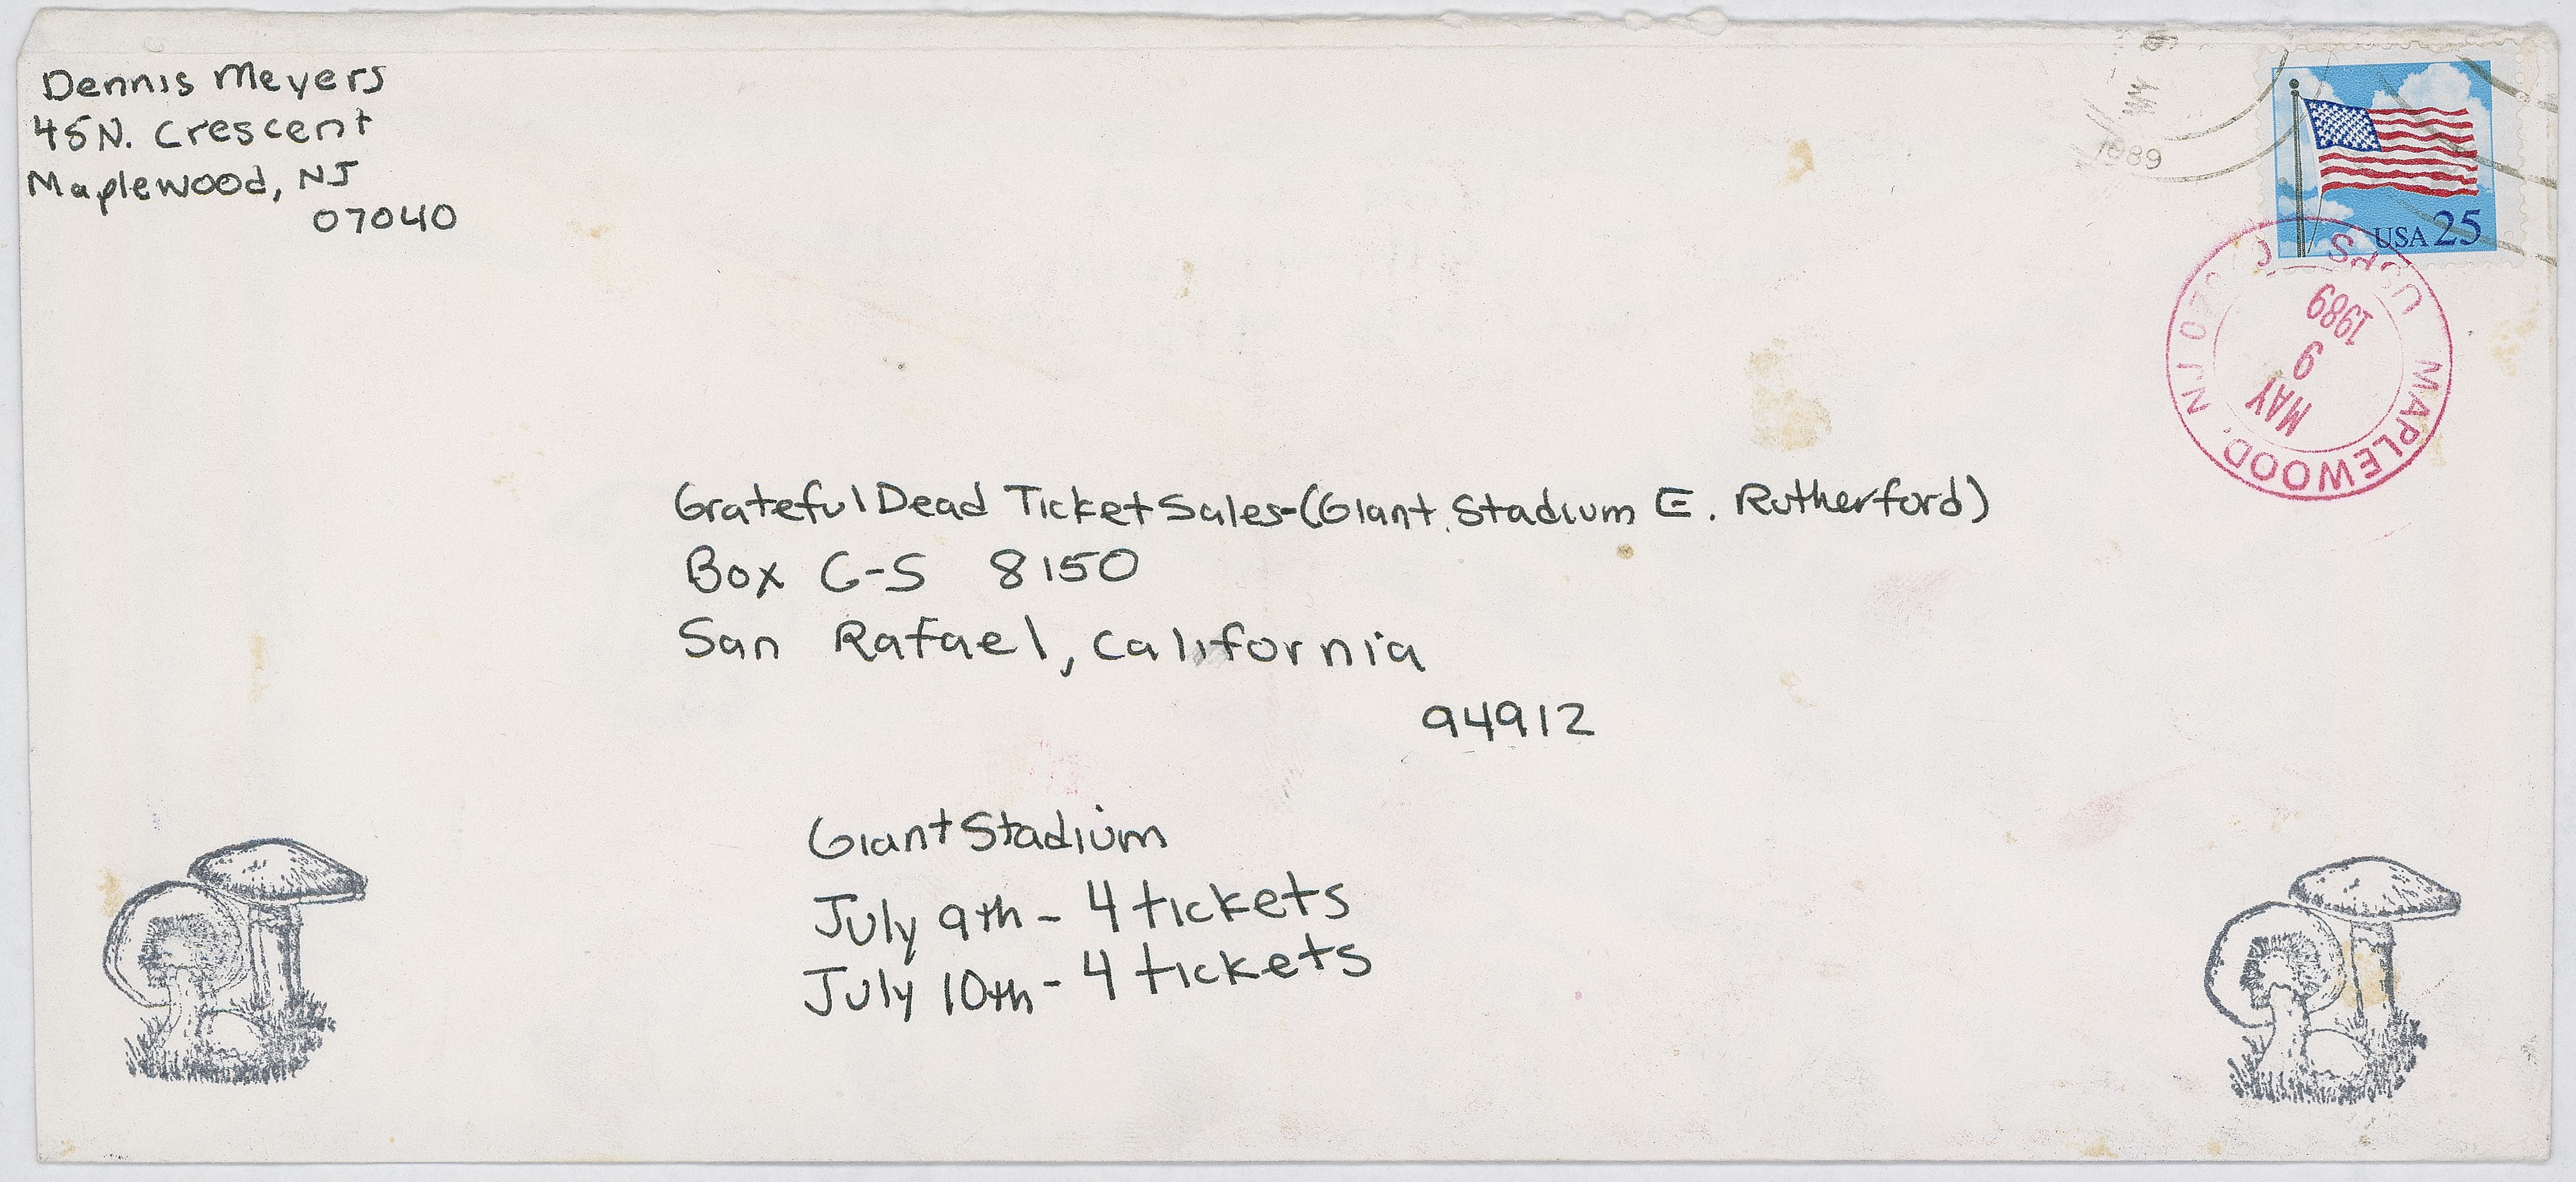 Dennis Meyers
45 N. Crescent
Maplewood, NJ
07040
1989
USA 25
MAPLEWOOD, NJ 07040
USPS
MAY
9
1989
Grateful Dead Ticket Sales-(Giant Stadium E. Rutherford)
Box C-S 8150
San Rafael, California
94912
Giant Stadium
July 9th - 4 tickets
July 10th - 4 tickets